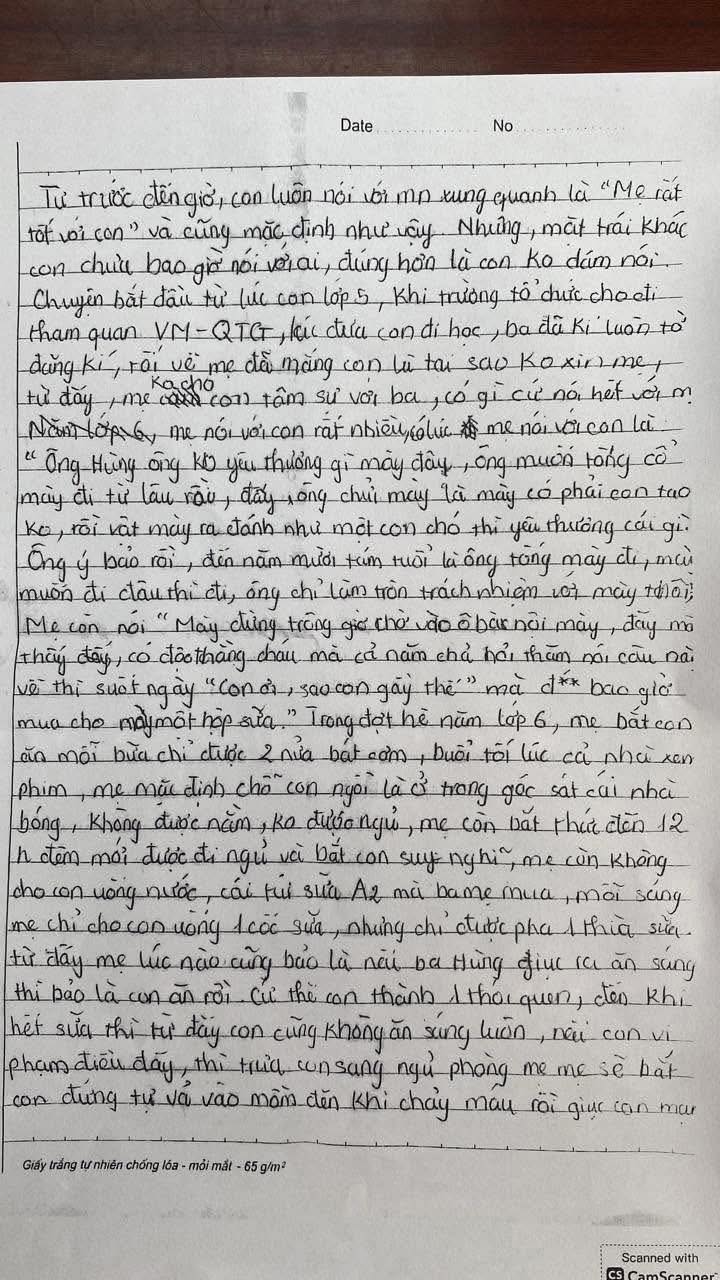 Date No
Từ trước đến giờ, con luôn nói với mn xung quanh là "Mẹ rất
tốt với con" và cũng mặc định như vậy. Nhưng, mặt trái khác
con chưa bao giờ nói với ai, đúng hơn là con ko dám nói.
Chuyện bắt đầu từ lúc con lớp 5, khi trường tổ chức cho đi
tham quan VM-QTG, lúc đưa con đi học, ba đã kí luôn tờ
đăng kí, rồi về mẹ đã mắng con là tại sao ko xin mẹ,
từ đấy, mẹ ko cho con tâm sự với ba, có gì cứ nói hết với m
Năm lớp 6, mẹ nói với con rất nhiều, có lúc mẹ nói với con là:
"Ông Hùng ông ko yêu thương gì mày đâu, ông muốn tống cổ
mày đi từ lâu rồi, đấy, ông chửi mày là mày có phải con tao
ko, rồi vật mày ra đánh như một con chó thì yêu thương cái gì?
Ông ý bảo rồi, đến năm mười tám tuổi là ông tống mày đi, mày
muốn đi đâu thì đi, ông chỉ làm tròn trách nhiệm với mày thôi;
Mẹ con nói "Mày đừng trông giờ chờ vào ô bà nội mày, đấy mà
thấy đấy, có độc thằng cháu mà cả năm chả hỏi thăm nói câu nài
về thì suốt ngày "con ơi, sao con gầy thế" mà đ** bao giờ
mua cho mày một hộp sữa." Trong đợt hè năm lớp 6, mẹ bắt con
ăn mỗi bữa chỉ được 2 nửa bát cơm, buổi tối lúc cả nhà xem
phim, mẹ mặc định chỗ con ngồi là ở trong góc sát cái nhà
bóng, không được nằm, ko được ngủ, mẹ còn bắt thức đến 12
h đêm mới được đi ngủ và bắt con suy nghĩ, mẹ còn không
cho con uống nước, cái túi sữa A2 mà ba mẹ mua, mỗi sáng
mẹ chỉ cho con uống 1 cốc sữa, nhưng chỉ được pha 1 thìa sữa.
từ đấy mẹ lúc nào cũng bảo là nếu ba Hùng giục ra ăn sáng
thì bảo là con ăn rồi. Cứ thế con thành 1 thói quen, đến khi
hết sữa thì từ đấy con cũng không ăn sáng luôn, nếu con vi
phạm điều đấy, thì trưa con sang ngủ phòng mẹ mẹ sẽ bắt
con đứng tự vả vào mồm đến khi chảy máu rồi giục con mau
Giấy trắng tự nhiên chống lóa - mỏi mắt - 65 g/m²
Scanned with
CS CamScanner